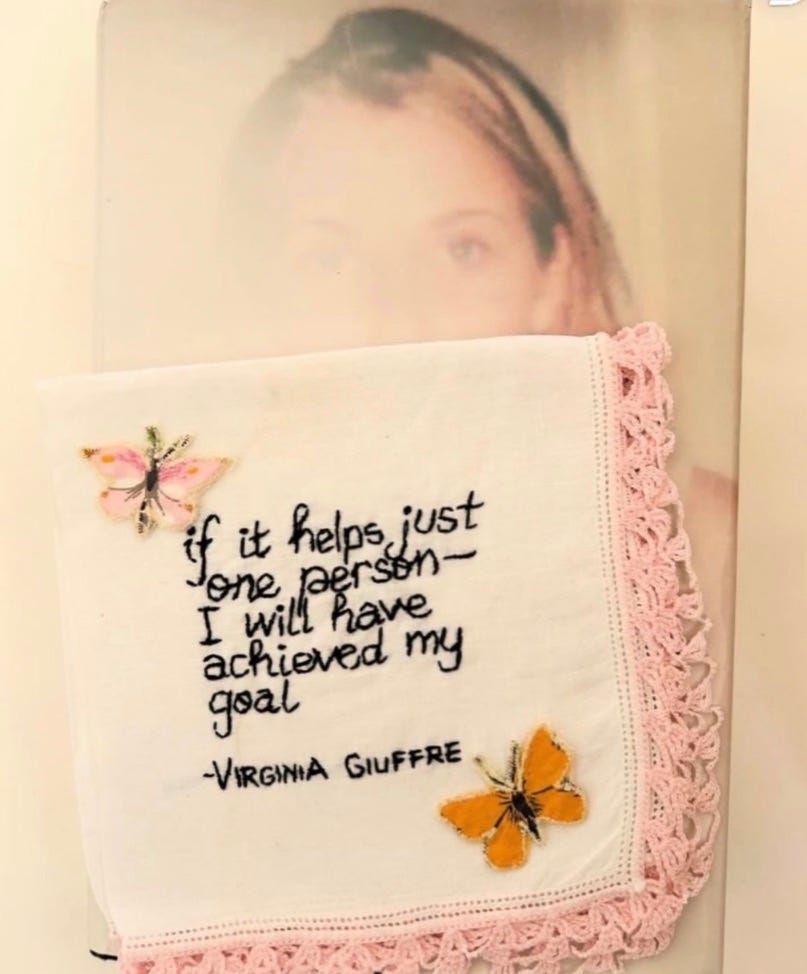 if it helps just
one person—
I will have
achieved my
goal
-VIRGINIA GIUFFRE